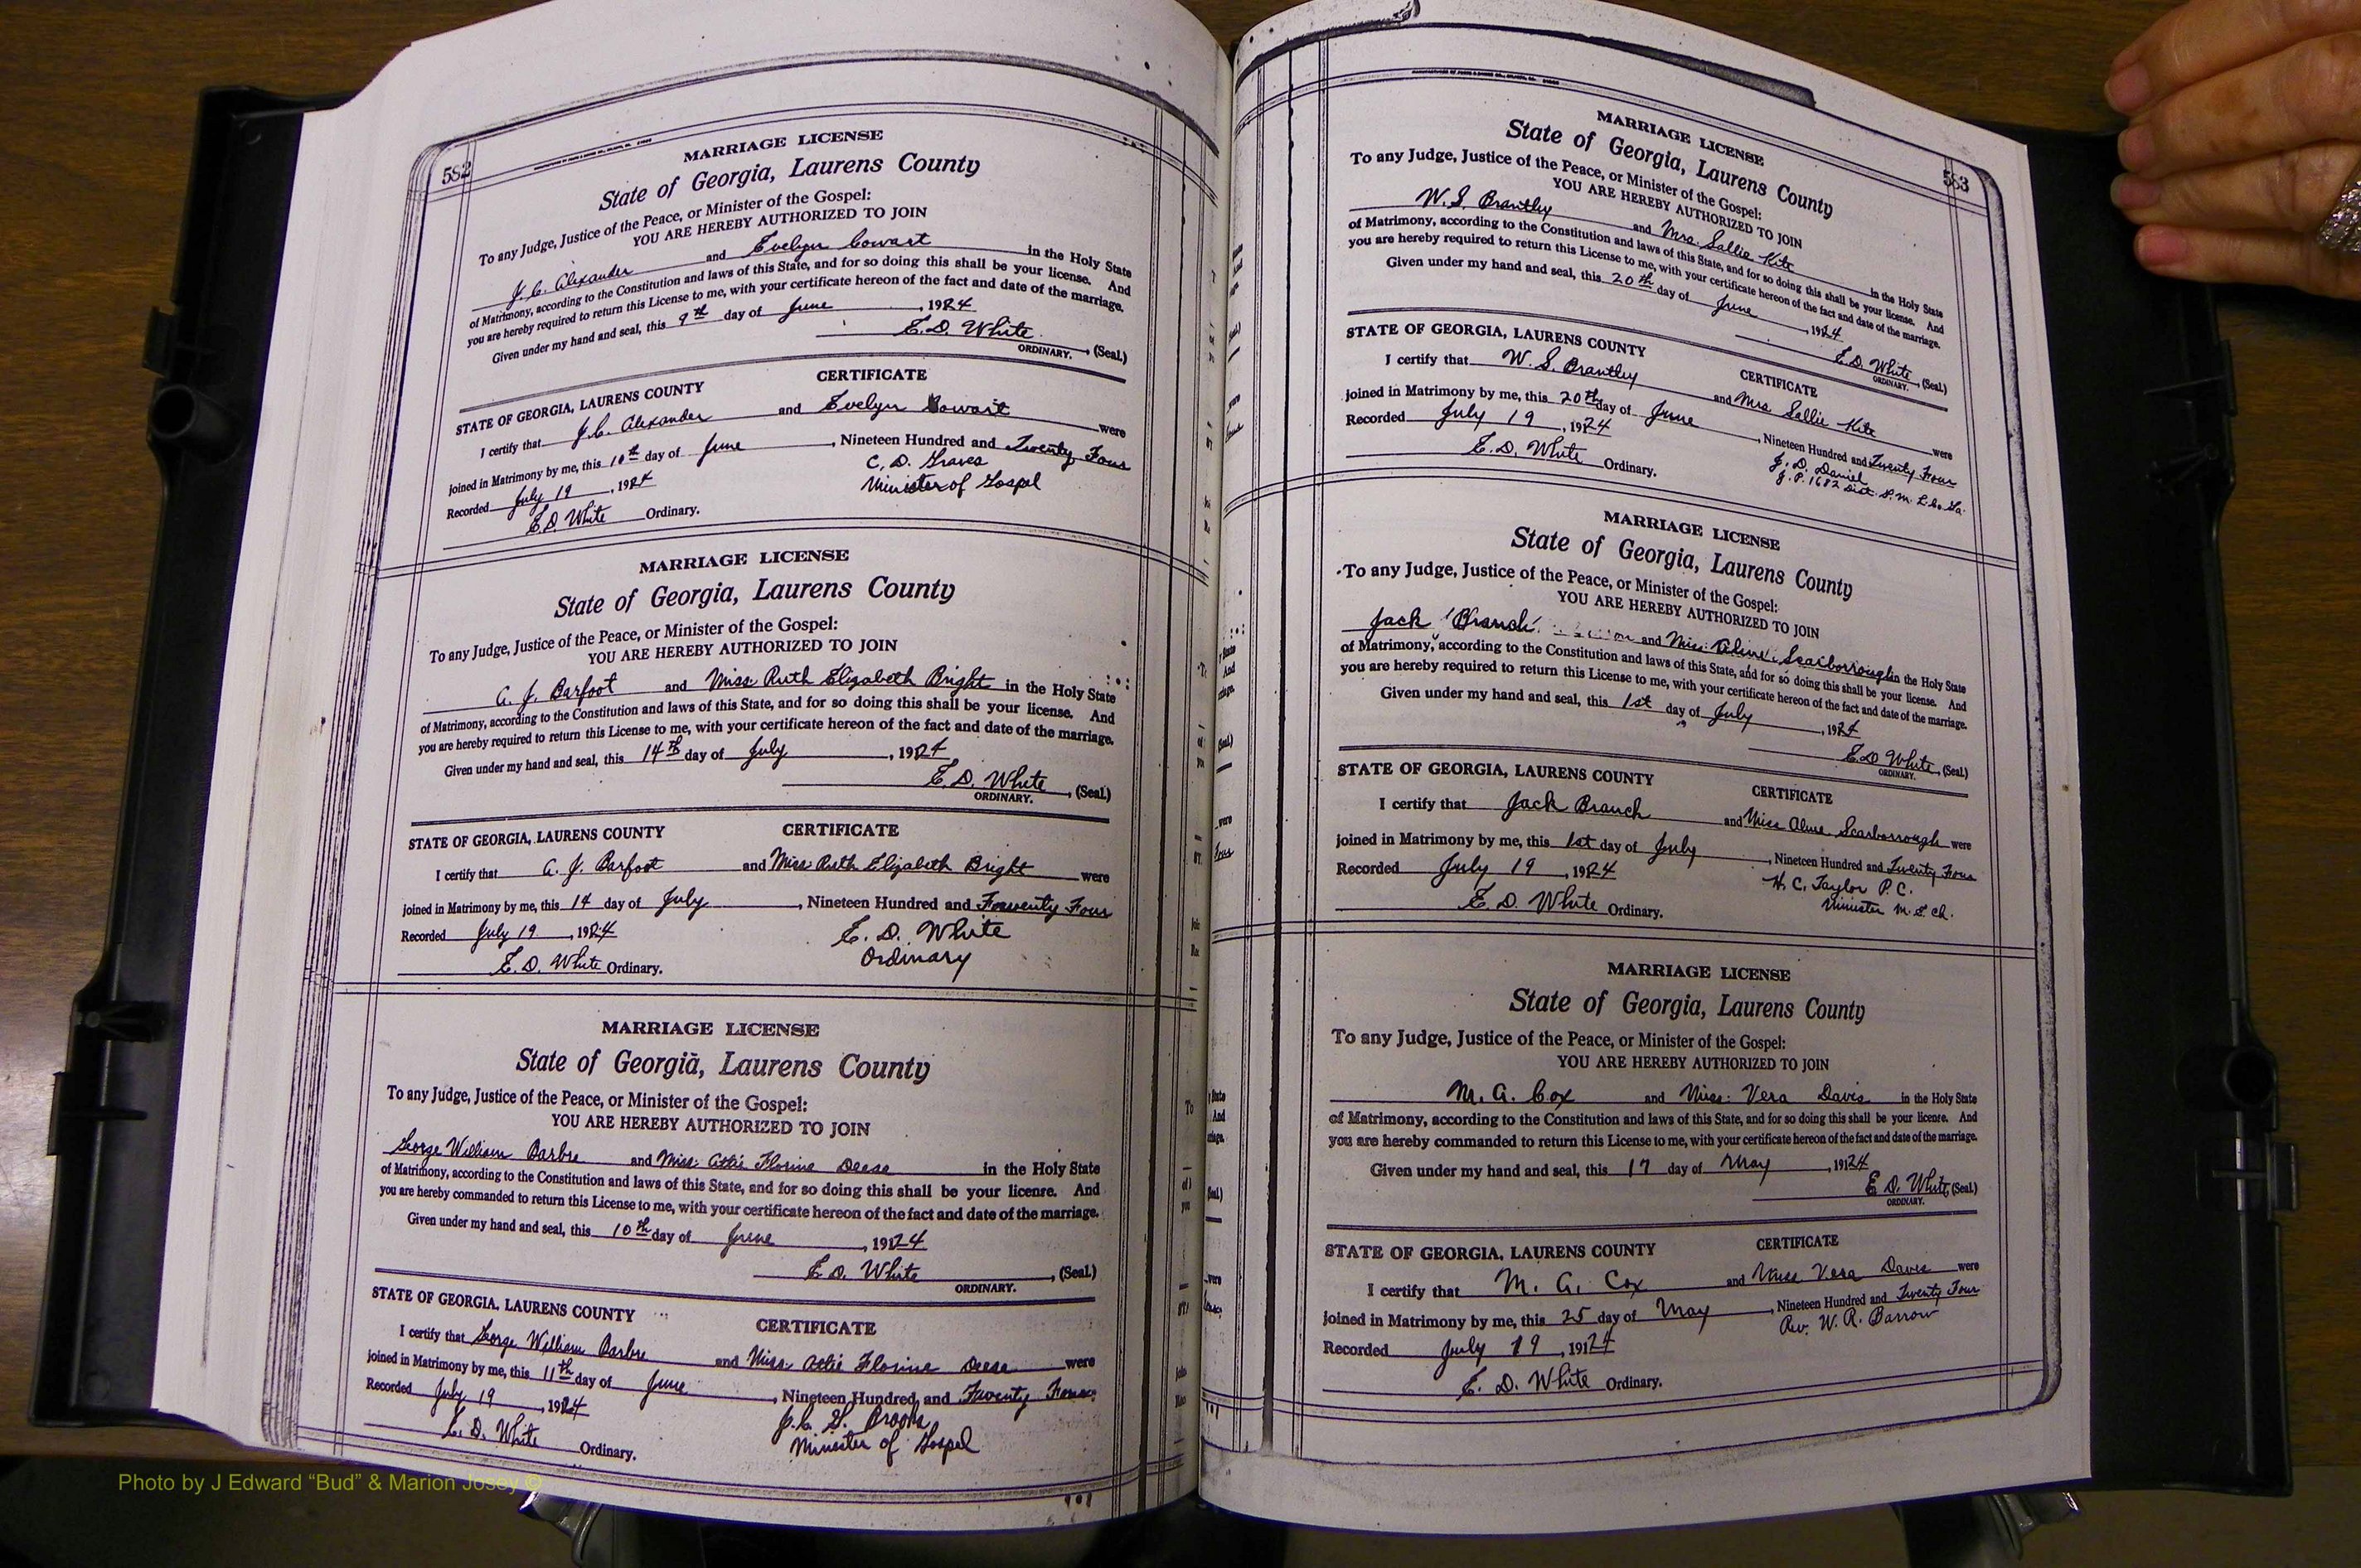 582
MARRIAGE LICENSE
State of Georgia, Laurens County
To any Judge, Justice of the Peace, or Minister of the Gospel:
YOU ARE HEREBY AUTHORIZED TO JOIN
J. C. Alexander and Evelyn Cowart in the Holy State
of Matrimony, according to the Constitution and laws of this State, and for so doing this shall be your license. And
you are hereby required to return this License to me, with your certificate hereon of the fact and date of the marriage.
Given under my hand and seal, this 9th day of June, 1924
E. D. White (Seal.)
ORDINARY.
STATE OF GEORGIA, LAURENS COUNTY CERTIFICATE
I certify that J. C. Alexander and Evelyn Cowart were
joined in Matrimony by me, this 10th day of June, Nineteen Hundred and Twenty Four
Recorded July 19, 1924 C. D. Graves
E. D. White Ordinary. Minister of Gospel
MARRIAGE LICENSE
State of Georgia, Laurens County
To any Judge, Justice of the Peace, or Minister of the Gospel:
YOU ARE HEREBY AUTHORIZED TO JOIN
A. J. Barfoot and Miss Ruth Elizabeth Bright in the Holy State
of Matrimony, according to the Constitution and laws of this State, and for so doing this shall be your license. And
you are hereby required to return this License to me, with your certificate hereon of the fact and date of the marriage.
Given under my hand and seal, this 14th day of July, 1924
E. D. White, (Seal.)
ORDINARY.
STATE OF GEORGIA, LAURENS COUNTY CERTIFICATE
I certify that A. J. Barfoot and Miss Ruth Elizabeth Bright were
joined in Matrimony by me, this 14 day of July, Nineteen Hundred and Twenty Four
Recorded July 19, 1924 E. D. White
E. D. White Ordinary. Ordinary
MARRIAGE LICENSE
State of Georgia, Laurens County
To any Judge, Justice of the Peace, or Minister of the Gospel:
YOU ARE HEREBY AUTHORIZED TO JOIN
George William Barbre and Miss: Attie Florine Deese in the Holy State
of Matrimony, according to the Constitution and laws of this State, and for so doing this shall be your license. And
you are hereby commanded to return this License to me, with your certificate hereon of the fact and date of the marriage.
Given under my hand and seal, this 10th day of June, 1924
E. D. White, (Seal.)
ORDINARY.
STATE OF GEORGIA, LAURENS COUNTY CERTIFICATE
I certify that George William Barbre and Miss Attie Florine Deese were
joined in Matrimony by me, this 11th day of June, Nineteen Hundred and Twenty Four
Recorded July 19, 1924 J. C. G. Brooks
E. D. White Ordinary. Minister of Gospel
583
MARRIAGE LICENSE
State of Georgia, Laurens County
To any Judge, Justice of the Peace, or Minister of the Gospel:
YOU ARE HEREBY AUTHORIZED TO JOIN
W. S. Brantley and Mrs. Sallie Kite in the Holy State
of Matrimony, according to the Constitution and laws of this State, and for so doing this shall be your license. And
you are hereby required to return this License to me, with your certificate hereon of the fact and date of the marriage.
Given under my hand and seal, this 20th day of June, 1924
E. D. White, (Seal.)
ORDINARY.
STATE OF GEORGIA, LAURENS COUNTY CERTIFICATE
I certify that W. S. Brantley and Mrs Sallie Kite were
joined in Matrimony by me, this 20th day of June, Nineteen Hundred and Twenty Four
Recorded July 19, 1924 J. D. Daniel
E. D. White Ordinary. J. P. 1682 Dist. G. M. L. Co. Ga.
MARRIAGE LICENSE
State of Georgia, Laurens County
To any Judge, Justice of the Peace, or Minister of the Gospel:
YOU ARE HEREBY AUTHORIZED TO JOIN
Jack Branch and Miss: Aline Scarborough in the Holy State
of Matrimony, according to the Constitution and laws of this State, and for so doing this shall be your license. And
you are hereby required to return this License to me, with your certificate hereon of the fact and date of the marriage.
Given under my hand and seal, this 1st day of July, 1924
E. D. White, (Seal.)
ORDINARY.
STATE OF GEORGIA, LAURENS COUNTY CERTIFICATE
I certify that Jack Branch and Miss Aline Scarborough were
joined in Matrimony by me, this 1st day of July, Nineteen Hundred and Twenty Four
Recorded July 19, 1924 H. C. Taylor P. C.
E. D. White Ordinary. Minister M. E. Ch.
MARRIAGE LICENSE
State of Georgia, Laurens County
To any Judge, Justice of the Peace, or Minister of the Gospel:
YOU ARE HEREBY AUTHORIZED TO JOIN
M. A. Cox and Miss: Vera Davis in the Holy State
of Matrimony, according to the Constitution and laws of this State, and for so doing this shall be your license. And
you are hereby commanded to return this License to me, with your certificate hereon of the fact and date of the marriage.
Given under my hand and seal, this 17 day of May, 1924
E. D. White, (Seal.)
ORDINARY.
STATE OF GEORGIA, LAURENS COUNTY CERTIFICATE
I certify that M. A. Cox and Miss Vera Davis were
joined in Matrimony by me, this 25 day of May, Nineteen Hundred and Twenty Four
Recorded July 19, 1924 Rev. W. R. Barrow
E. D. White Ordinary.
Photo by J Edward “Bud” & Marion Josey ©